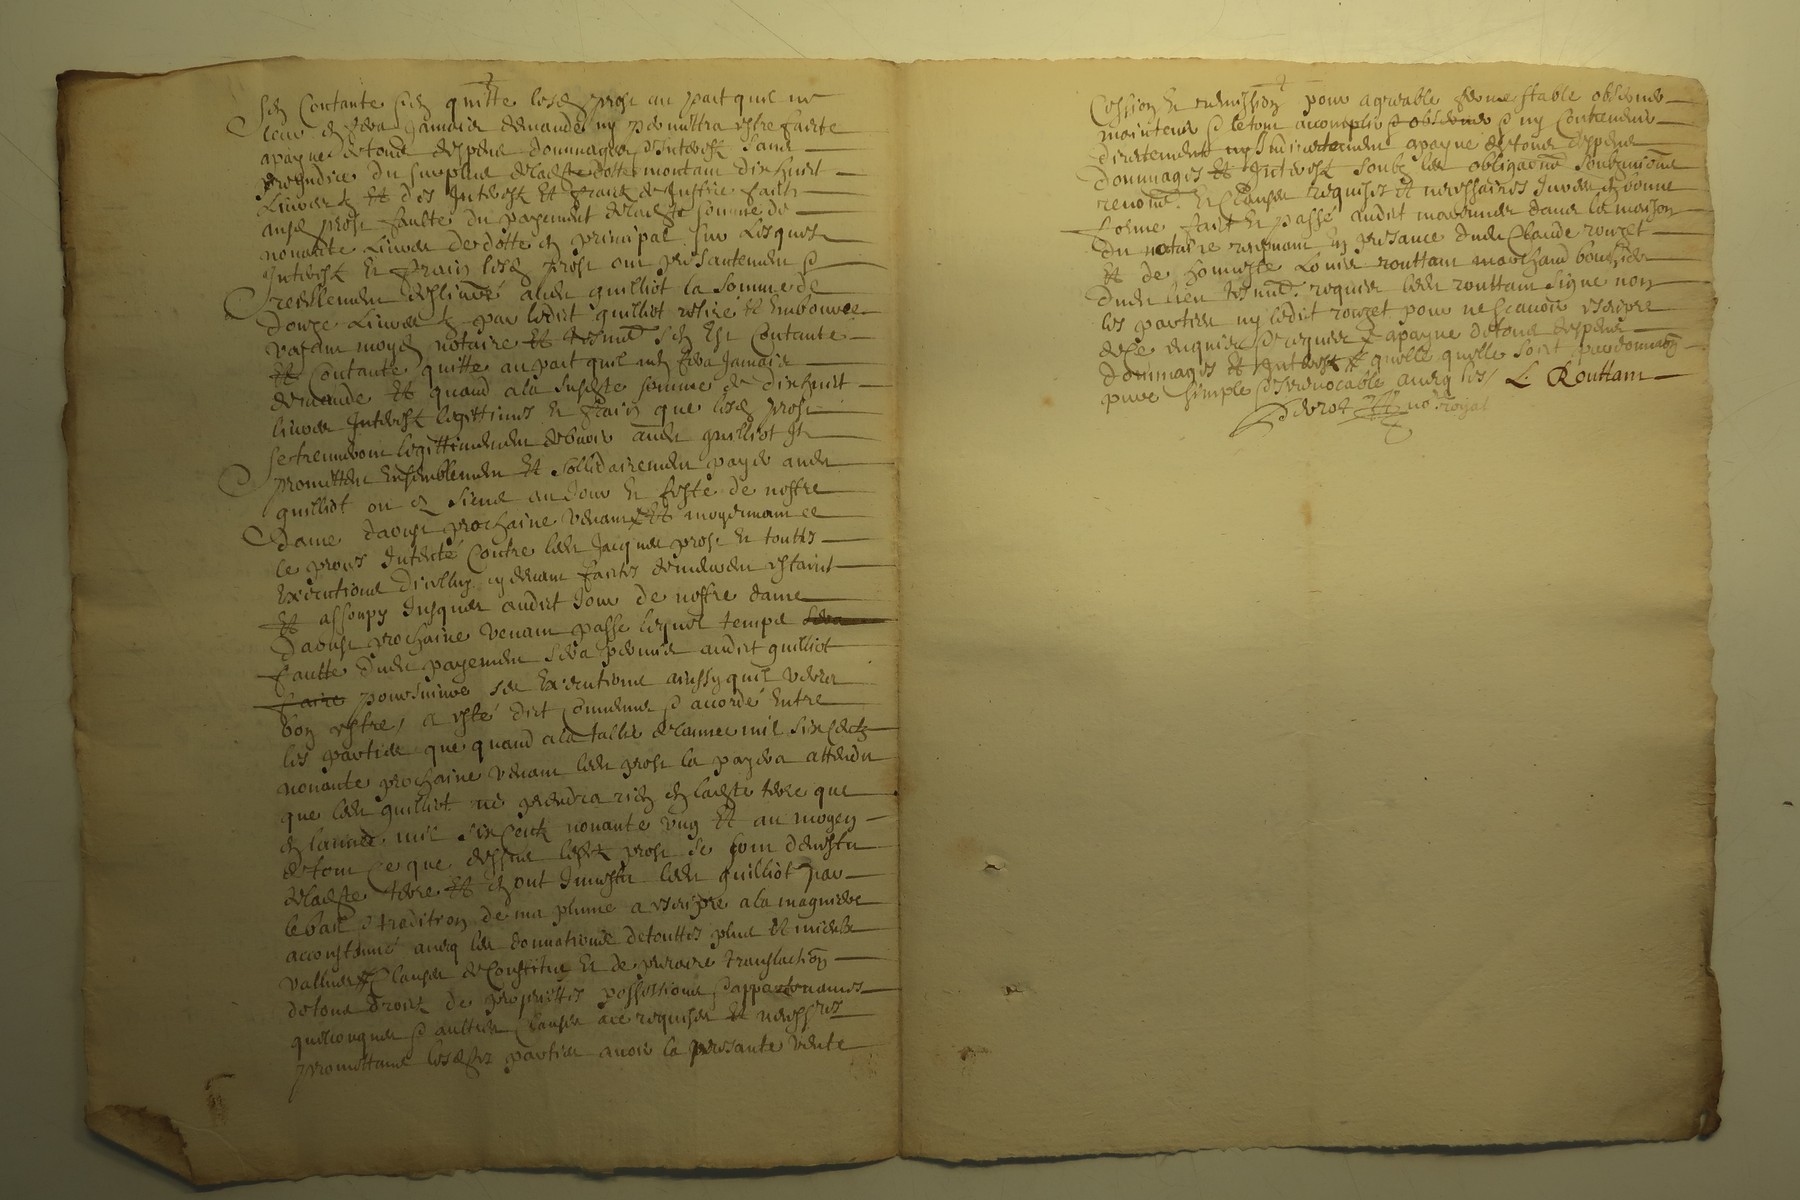 s'en contante s'en quitte lesd prost au part quil ne
leur en fera Jamais demande ny permettra estre faicte
a payne de tous despens dommages & Interest sans
preiudice du surplus de ladte dotte montant dixhuict
Livres et des Interest et fraiz de Justice faictz
ausd prost faulte du payement de ladte somme de
nonante Livres de dotte en principal sur lesquelz
Interest et fraiz lesd prost ont presantement &
reellement deslivré audit guilliot la somme de
douze Livres par ledict guilliot retiré et Embourcee
voyant moyd notaire et tesmns s'en est contante
et contante quitte au part quil nen fera Jamais
demande et quand a la susdte somme de dixhuict
livres Interest legittimes et fraiz que lesd prost
se treuveront legittimement debvoir audit guilliot Ilz
promettent Ensemblement et sollidairement payer audit
guilliot ou es siens au Jour et feste de nostre
dame daoust prochaine venant et moyennant ce
le proces Intenté contre ledit Jacques prost et touttes
Executions dicelluy cy devant faictes demeurent estaint
et assoupy Jusques audict Jour de nostre dame
daoust prochaine venant passe lequel temps
faulte dudit payement sera permis audict guilliot
faire poursuivre ses Executions ainssy quil verra
bon estre, a esté dict convenus & accordé Entre
les parties que quand a la taille de lannee mil six centz
nonante prochaine venant ledit prost la payera attendu
que ledit guilliot ne prendra rien en ladte terre que
en lannee mil six centz nonante ung et au moyen
de tout ce que dessus lesd prost se sont devestu
de ladte terre et en ont Investu ledit guilliot par
le bail & tradition de ma plume a escripre a la magniere
accoustumé avecq les donnations de touttes plus et mieux
vallues clauses de constitut et de precaire translaction
de tous droictz de proprietes possessions & appartenances
quelconques & aultres clauses ace requises et necessres
promettans lesdtes parties avoir la presante vente
Cession et remission pour agreable ferme stable observer
maintenir & le tout accomplir & observer & ny contrevenir
directement ny Indirectement a payne de tous despens
dommages et Interest soubz les obligaons soubmissions
renons et clauses requises et necessaires Juree en bonne
forme faict et passé audict dans la maison
du notaire recepvant en presance dudit Claude rouget
et de honneste Louis routtam marchand boucher
dudit lieu tesmns requis ledit routtam signe non
les parties ny ledict rouget pour ne scavoir escripre
de ce enquis & requis a payne de tous despens
dommages et Interest quelle quelle soit par donnaon
pure simple & irrevocable avecq les / L Routtam
no royal